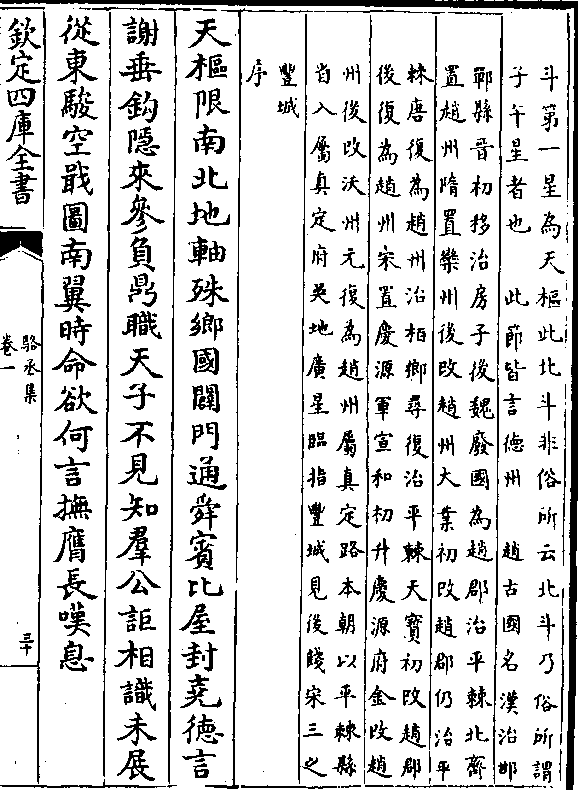 斗第一星為天樞此北斗非俗所云北斗乃俗所謂
子午星者也　此節皆言德州　趙古國名漢治邯
鄲縣晉初移治房子後魏廢國為趙郡治平棘北齊
置趙州隋置欒州後改趙州大業初改趙郡仍治平
棘唐復為趙州治柏鄉尋復治平棘天寶初改趙郡
後復為趙州宋置慶源軍宣和初升慶源府金改趙
州後改沃州元復為趙州屬真定路本朝以平棘縣
省入屬真定府吳地廣星臨指豐城見後餞宋三之
豐城
序
天樞限南北地軸殊鄉國闢門通舜賓比屋封堯德言
謝垂鈎隱來參負鼎職天子不見知羣公詎相識未展
從東駿空戢圖南翼時命欲何言撫膺長嘆息
欽定四庫全書
駱丞集
卷一
三十